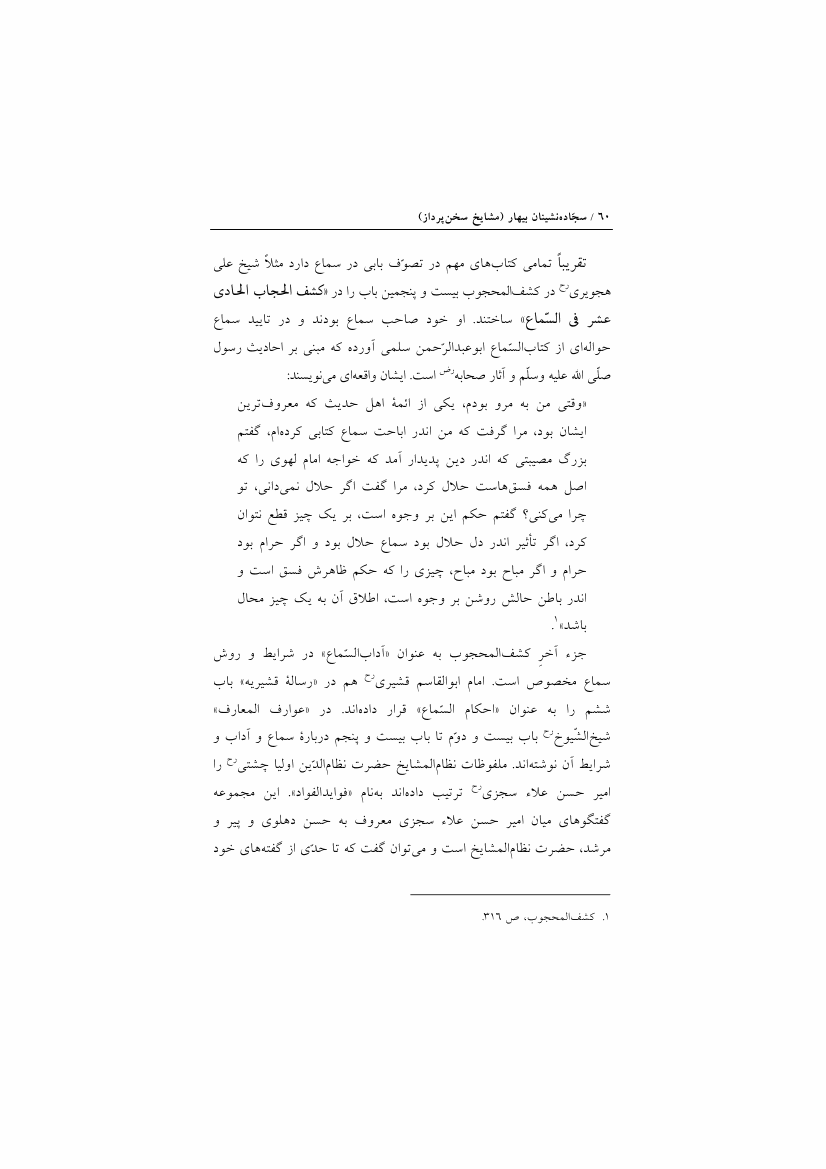 ۶۰ / سجّاده‌نشینان بیهار (مشایخ سخن‌پرداز)
تقریباً تمامی کتاب‌های مهم در تصوّف بابی در سماع دارد مثلاً شیخ علی
هجویری‌رح در کشف‌المحجوب بیست و پنجمین باب را در «کشف الحجاب الحادی
عشر فی السّماع» ساختند. او خود صاحب سماع بودند و در تایید سماع
حواله‌ای از کتاب‌السّماع ابوعبدالرّحمن سلمی آورده که مبنی بر احادیث رسول
صلّی الله علیه وسلّم و آثار صحابه‌رض است. ایشان واقعه‌ای می‌نویسند:
«وقتی من به مرو بودم، یکی از ائمهٔ اهل حدیث که معروف‌ترین
ایشان بود، مرا گرفت که من اندر اباحت سماع کتابی کرده‌ام، گفتم
بزرگ مصیبتی که اندر دین پدیدار آمد که خواجه امام لهوی را که
اصل همه فسق‌هاست حلال کرد، مرا گفت اگر حلال نمی‌دانی، تو
چرا می‌کنی؟ گفتم حکم این بر وجوه است، بر یک چیز قطع نتوان
کرد، اگر تأثیر اندر دل حلال بود سماع حلال بود و اگر حرام بود
حرام و اگر مباح بود مباح، چیزی را که حکم ظاهرش فسق است و
اندر باطن حالش روشن بر وجوه است، اطلاق آن به یک چیز محال
باشد»۱.
جزء آخرِ کشف‌المحجوب به عنوان «آداب‌السّماع» در شرایط و روش
سماع مخصوص است. امام ابوالقاسم قشیری‌رح هم در «رسالهٔ قشیریه» باب
ششم را به عنوان «احکام السّماع» قرار داده‌اند. در «عوارف المعارف»
شیخ‌الشّیوخ‌رح باب بیست و دوّم تا باب بیست و پنجم دربارهٔ سماع و آداب و
شرایط آن نوشته‌اند. ملفوظات نظام‌المشایخ حضرت نظام‌الدّین اولیا چشتی‌رح را
امیر حسن علاء سجزی‌رح ترتیب داده‌اند به‌نام «فوایدالفواد». این مجموعه
گفتگوهای میان امیر حسن علاء سجزی معروف به حسن دهلوی و پیر و
مرشد، حضرت نظام‌المشایخ است و می‌توان گفت که تا حدّی از گفته‌های خود
۱. کشف‌المحجوب، ص ۳۱۶.